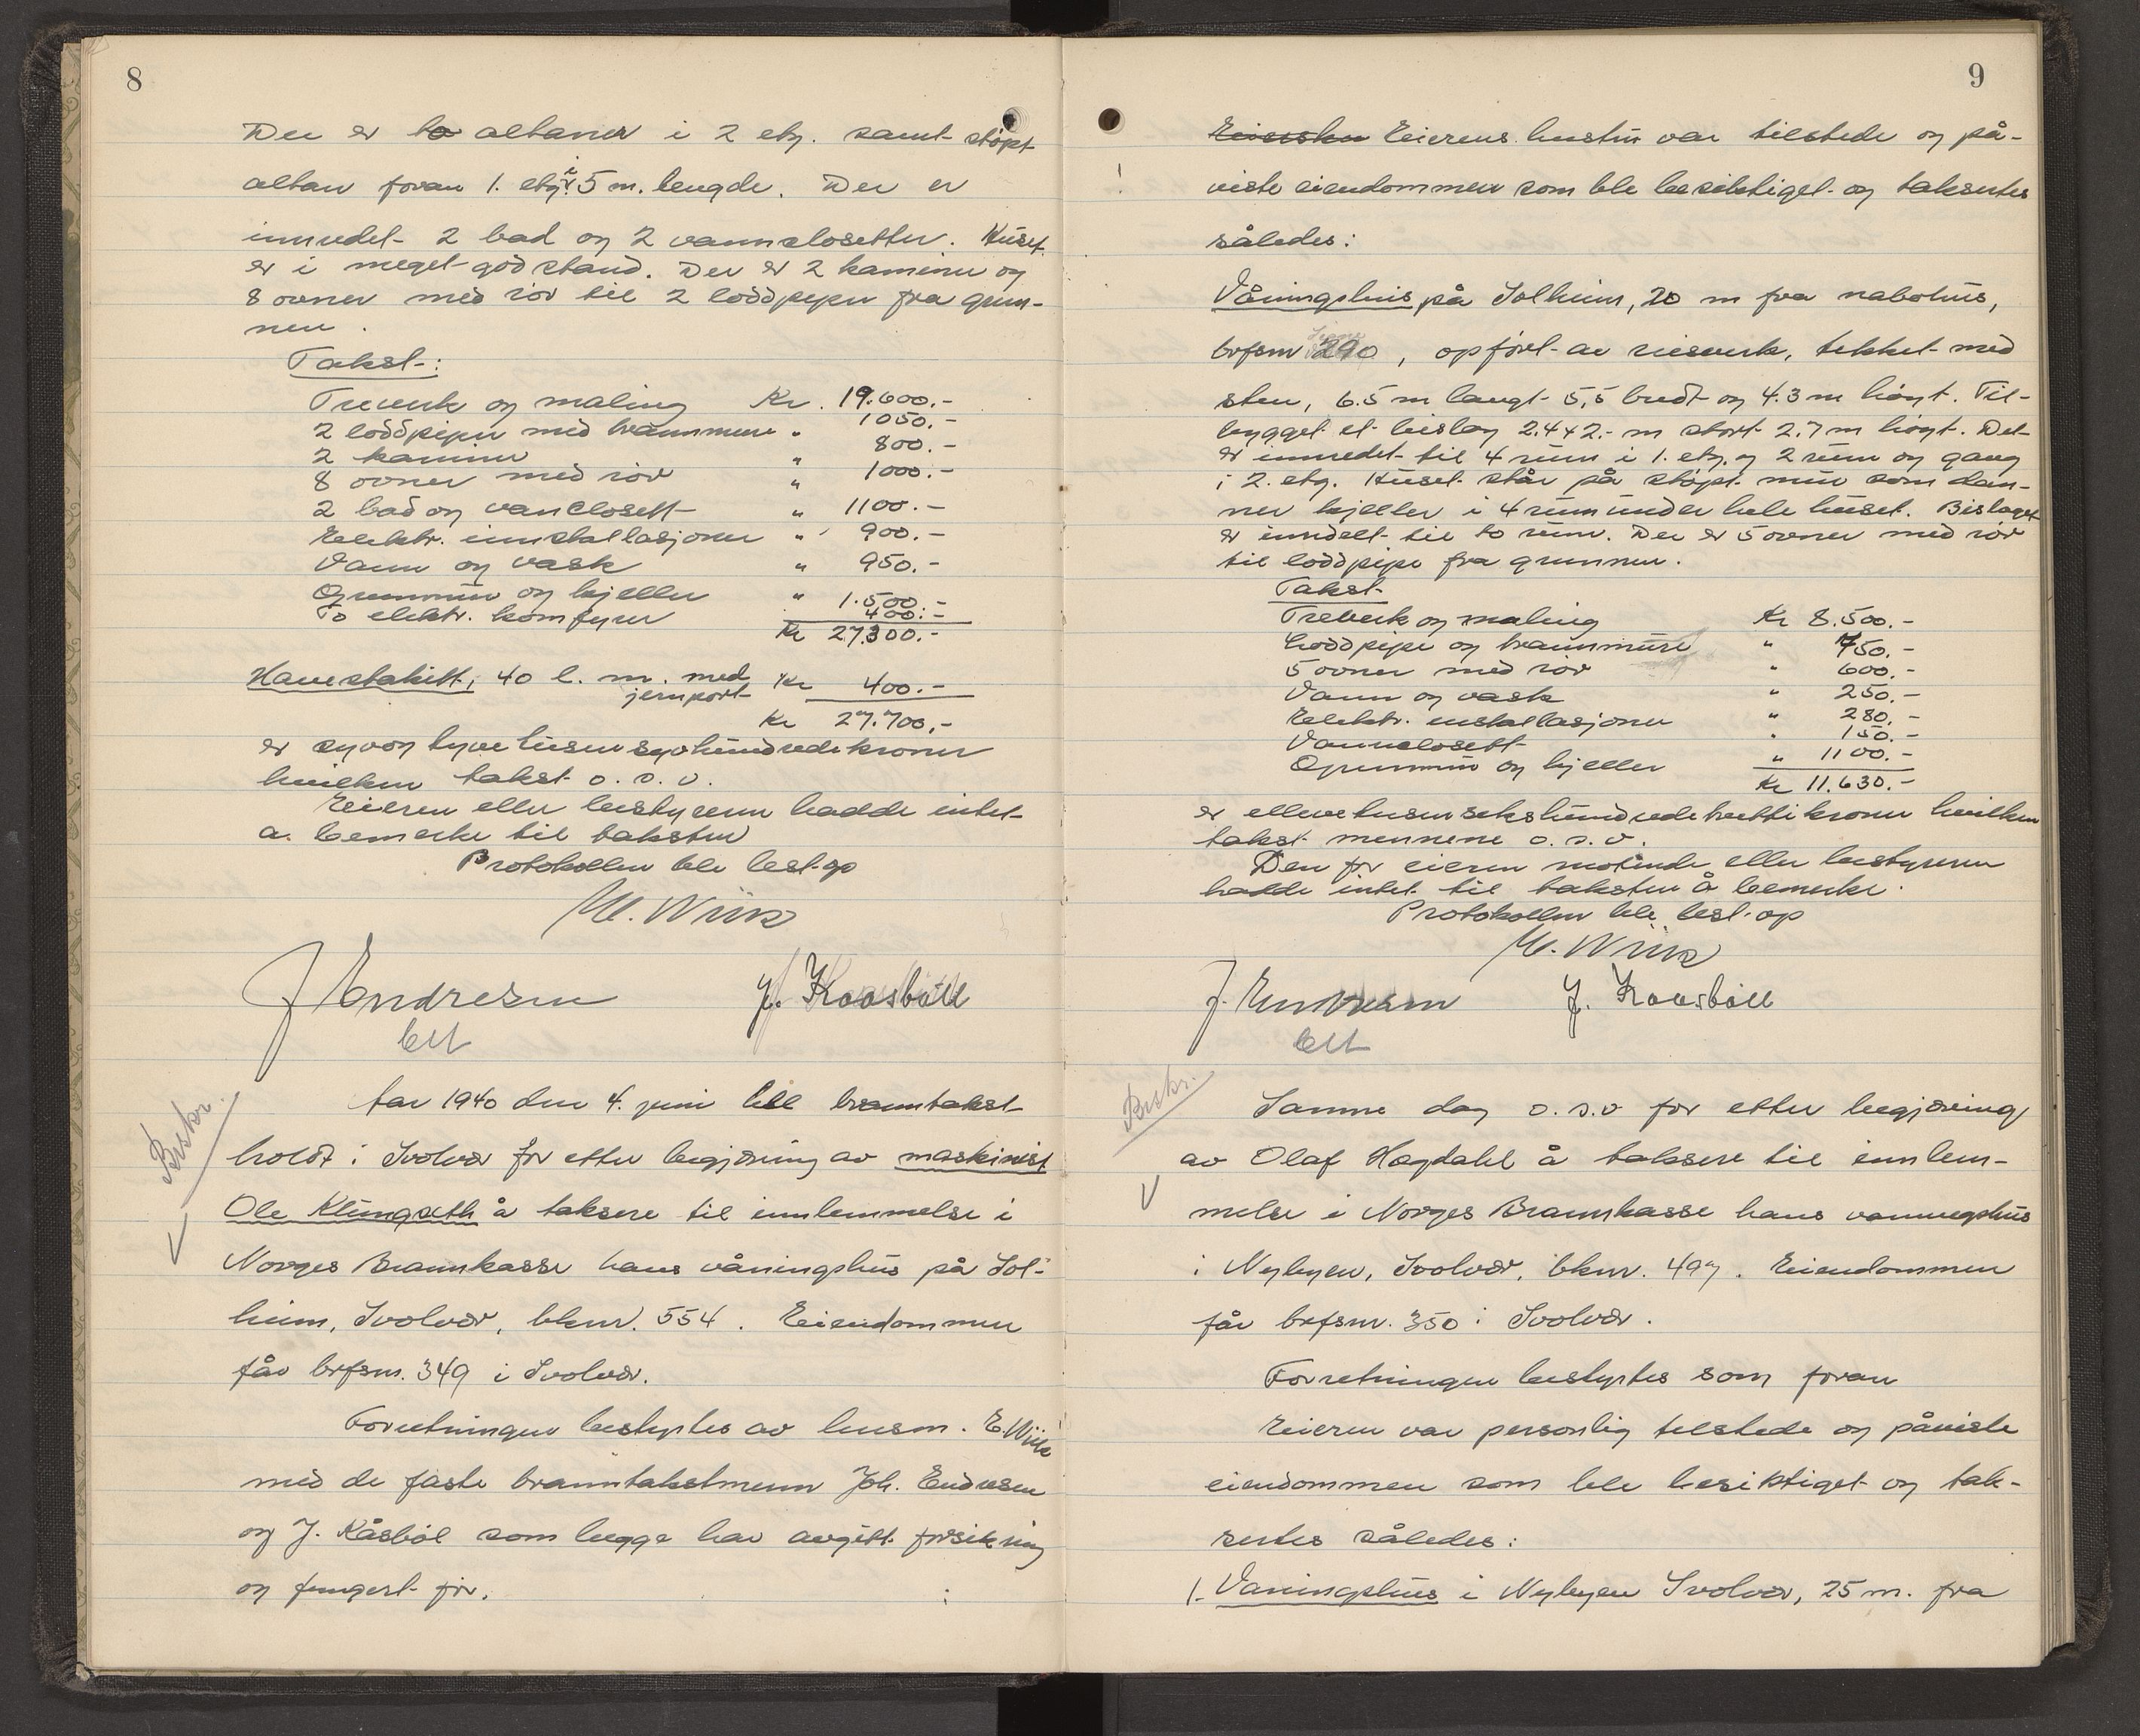 8
Der er to altaner i 2 etg. samt støpt
altan foran 1. etg. i 5 m. lengde. Der er
innredet 2 bad og 2 vannklosetter. Huset
er i meget god stand. Der er 2 kaminer og
8 ovner med rør til 2 loddpiper fra grun-
nen.
Takst:
Treverk og maling Kr. 19.600.-
2 loddpiper med brannmure " 1050.-
2 kaminer " 800.-
8 ovner med rør " 1000.-
2 bad og vanclosett " 1100.-
Elektr. innstallasjoner " 900.-
Vann og vask " 950.-
Grunnmur og kjeller " 1.500.-
To elektr. komfyrer 400.-
Kr 27.300.-
Havestakitt, 40 l. m. med
jernport Kr 400.-
Kr 27.700,-
er syvogtyvetusensyvhundredekroner
hvilken takst o. s. v.
Eieren eller bestyreren hadde intet
a. bemerke til taksten
Protokollen ble lest op
M. Wiik
J Endresen J. Kaasbøll
Ar 1940 den 4. juni ble branntakst
holdt i Svolvær for etter begjæring av maskinist
Ole Klungseth å taksere til innlemmelse i
Norges Brannkasse hans våningshus på Sol-
heim, Svolvær, bknr. 554. Eiendommen
får brfsnr. 349 i Svolvær.
Forretningen bestyrtes av lensm. E. Wiik
med de faste branntakstmenn Joh. Endresen
og J. Kåsbøl som begge har avgitt forsikring
og fungert før.
9
Eierens hustru var tilstede og på-
viste eiendommen som ble besiktiget og taksertes
således:
Våningshus på Solheim, 20 m fra nabohus,
brfsnr 290, opført av reisverk, tekket med
sten, 6.5 m langt 5,5 bredt og 4.3 m høyt. Til-
bygget et bislag 2.4 x 2.- m stort 2.7 m høyt. Det
er innredet til 4 rum i 1. etg. og 2 rum og gang
i 2. etg. Huset står på støpt mur som dan-
ner kjeller i 4 rum under hele huset. Bislaget
er inndelt til to rum. Der er 5 ovner med rør
til loddpipe fra grunnen.
Takst
Treverk og maling Kr 8.500.-
Loddpipe og brannmure " 750.-
5 ovner med rør " 600.-
Vann og vask " 250.-
Elektr. installasjoner " 280.-
Vannclosett " 150.-
Grunnmur og kjeller " 1100.-
Kr 11.630.-
er ellevetusensekshundredetrettikroner hvilken
takst mennene o. s. v.
Den for eieren møtende eller bestyreren
hadde intet til taksten å bemerke.
Protokollen ble lest op
M. Wiik
J. Endresen J. Kaasbøll
Samme dag o. s. v for etter begjæring
av Olaf Hagdahl å taksere til innlem-
melse i Norges Brannkasse hans vaaningshus
i Nybyen, Svolvær, bknr. 497. Eiendommen
får brfsnr. 350 i Svolvær.
Forretningen bestyrtes som foran
Eieren var personlig tilstede og påviste
eiendommen som ble besiktiget og tak-
sertes således:
1. Vaningshus i Nybyen Svolvær, 25 m. fra